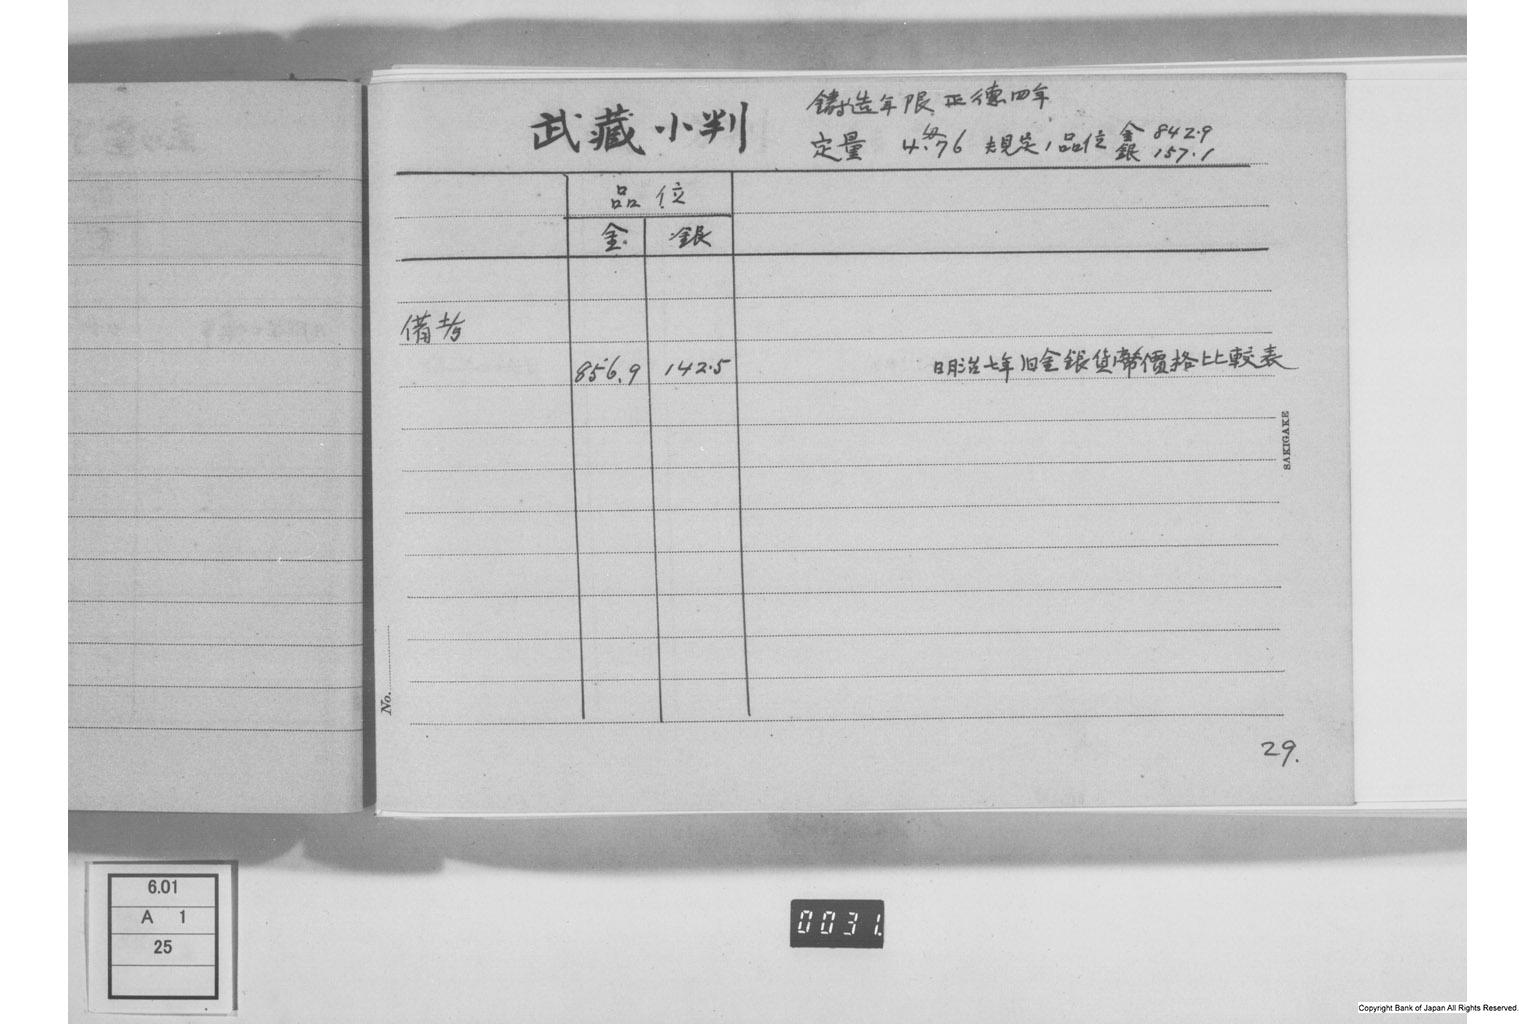 武藏小判
鑄造年限 正德四年
定量 4匁76 規定ノ品位 金 842.9
銀 157.1
品位
金 銀
備考
856.9 142.5 明治七年旧金銀貨幣價格比較表
SAKIGAKE
No.
29.
6.01
A 1
25
0031.
Copyright Bank of Japan All Rights Reserved.